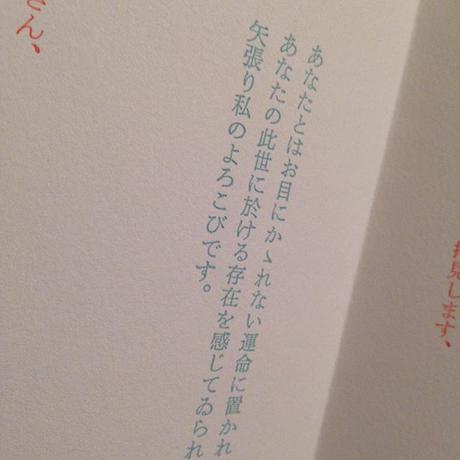 拝見します、
あなたとはお目にかゝれない運命に置かれ
あなたの此世に於ける存在を感じてゐられ
矢張り私のよろこびです。
さん、